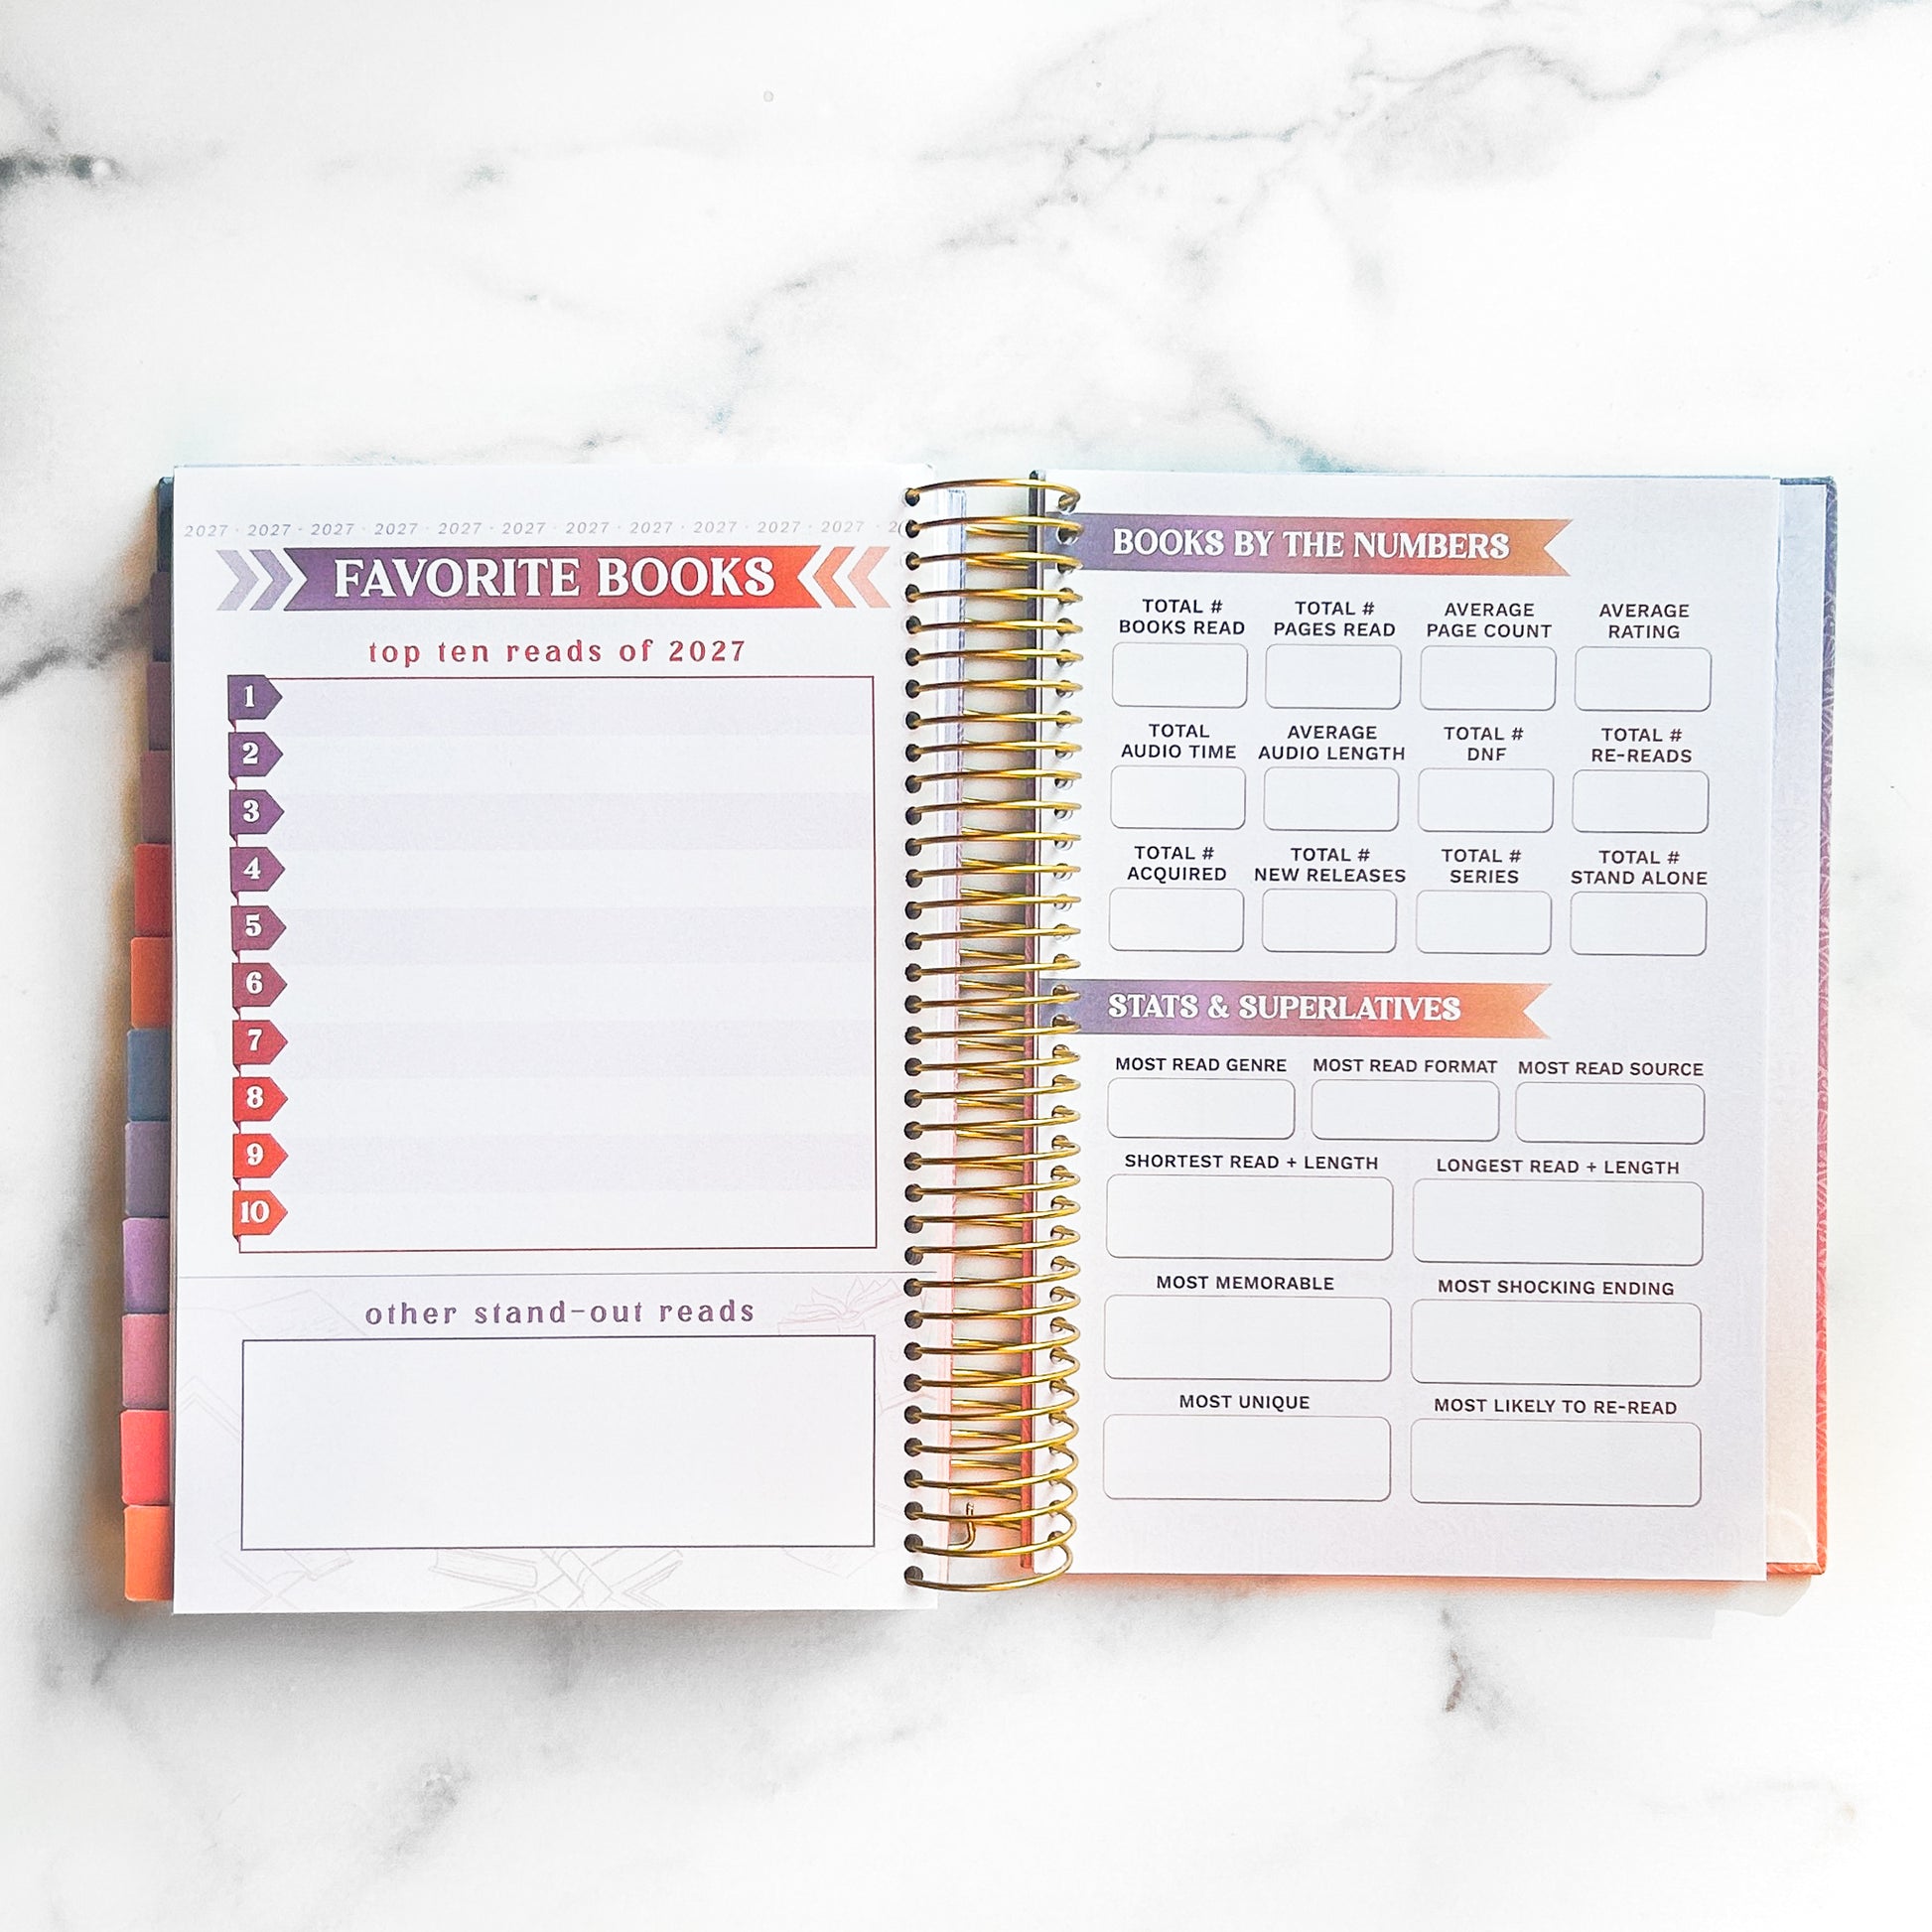 2027 · 2027 · 2027 · 2027 · 2027 · 2027 · 2027 · 2027 · 2027 · 2027 · 2027 ·
FAVORITE BOOKS
top ten reads of 2027
1
2
3
4
5
6
7
8
9
10
other stand-out reads
BOOKS BY THE NUMBERS
TOTAL #
BOOKS READ
TOTAL #
PAGES READ
AVERAGE
PAGE COUNT
AVERAGE
RATING
TOTAL
AUDIO TIME
AVERAGE
AUDIO LENGTH
TOTAL #
DNF
TOTAL #
RE-READS
TOTAL #
ACQUIRED
TOTAL #
NEW RELEASES
TOTAL #
SERIES
TOTAL #
STAND ALONE
STATS & SUPERLATIVES
MOST READ GENRE
MOST READ FORMAT
MOST READ SOURCE
SHORTEST READ + LENGTH
LONGEST READ + LENGTH
MOST MEMORABLE
MOST SHOCKING ENDING
MOST UNIQUE
MOST LIKELY TO RE-READ